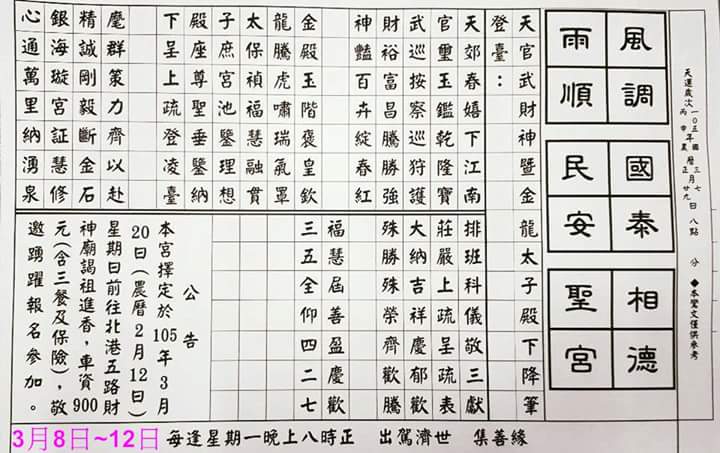 天運歲次一○五年國曆三月七日 八點 分
丙申年農曆正月廿九日
◆本鸞文僅供參考
風調
雨順
國泰
民安
相德
聖宮
天官武財神暨金龍太子殿下降筆
登臺：
天郊春嬉下江南 排班科儀敬三獻
官璽玉鑑乾隆寶 莊嚴上疏呈疏表
武巡按察巡狩護 大納吉祥慶郁歡
財裕富昌騰勝強 殊勝殊榮齊歡騰
神豔百卉綻春紅
福慧屆善盈慶歡
金殿玉階褒皇欽 三五全仰四二七
龍騰虎嘯瑞氣罩
太保禎福慧融貫
子庶宮池鑒理想
殿座尊聖垂鑒納
下呈上疏登凌臺
麾群策力齊以赴
精誠剛毅斷金石
銀海璇宮証慧修
心通萬里納湧泉
公告
本宮擇定於105年3月
20日(農曆2月12日)
星期日前往北港五路財
神廟謁祖進香，車資900
元(含三餐及保險)，敬
邀踴躍報名參加。
3月8日~12日 每逢星期一晚上八時正 出駕濟世 集善緣